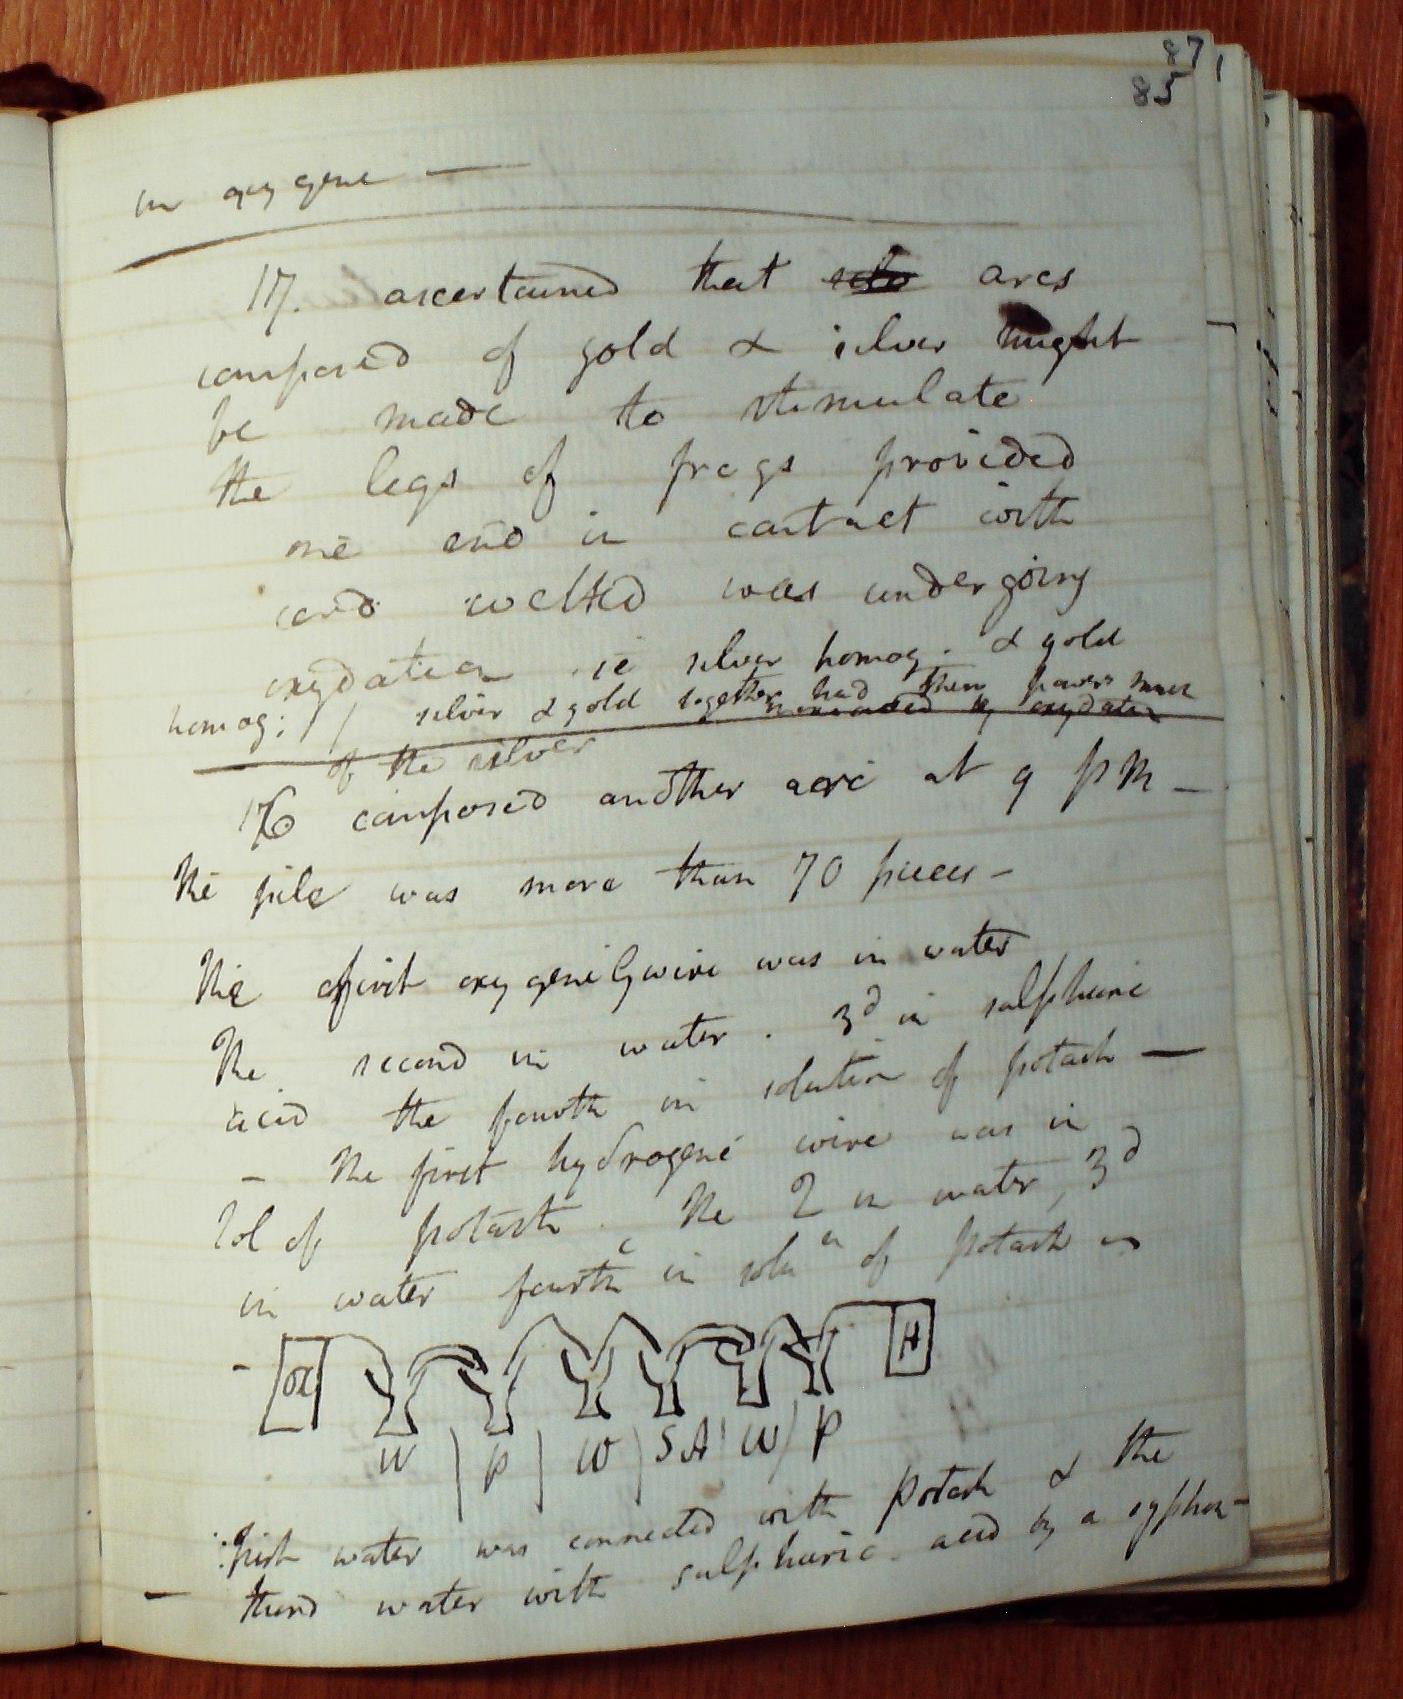 87
85
in oxygene —
17. ascertained that arcs
composed of gold & silver might
be made to stimulate
the legs of frogs provided
one end in contact with
and wetted was undergoing
oxydation ie silver homog. & gold
homog: / silver & gold together had their powers much
increased by oxydation
of the silver
176 composed another arc at 9 PM —
The pile was more than 70 pieces —
The first oxygene wire was in water
The second in water. 3d in sulphuric
acid the fourth in solution of potash —
— The first hydrogene wire was in
Sol of potash. The 2 in water, 3d
in water fourth in soln of potash
OX H
W | P | W | SA | W / P
first water was connected with Potash & the
third water with sulphuric acid by a syphon —